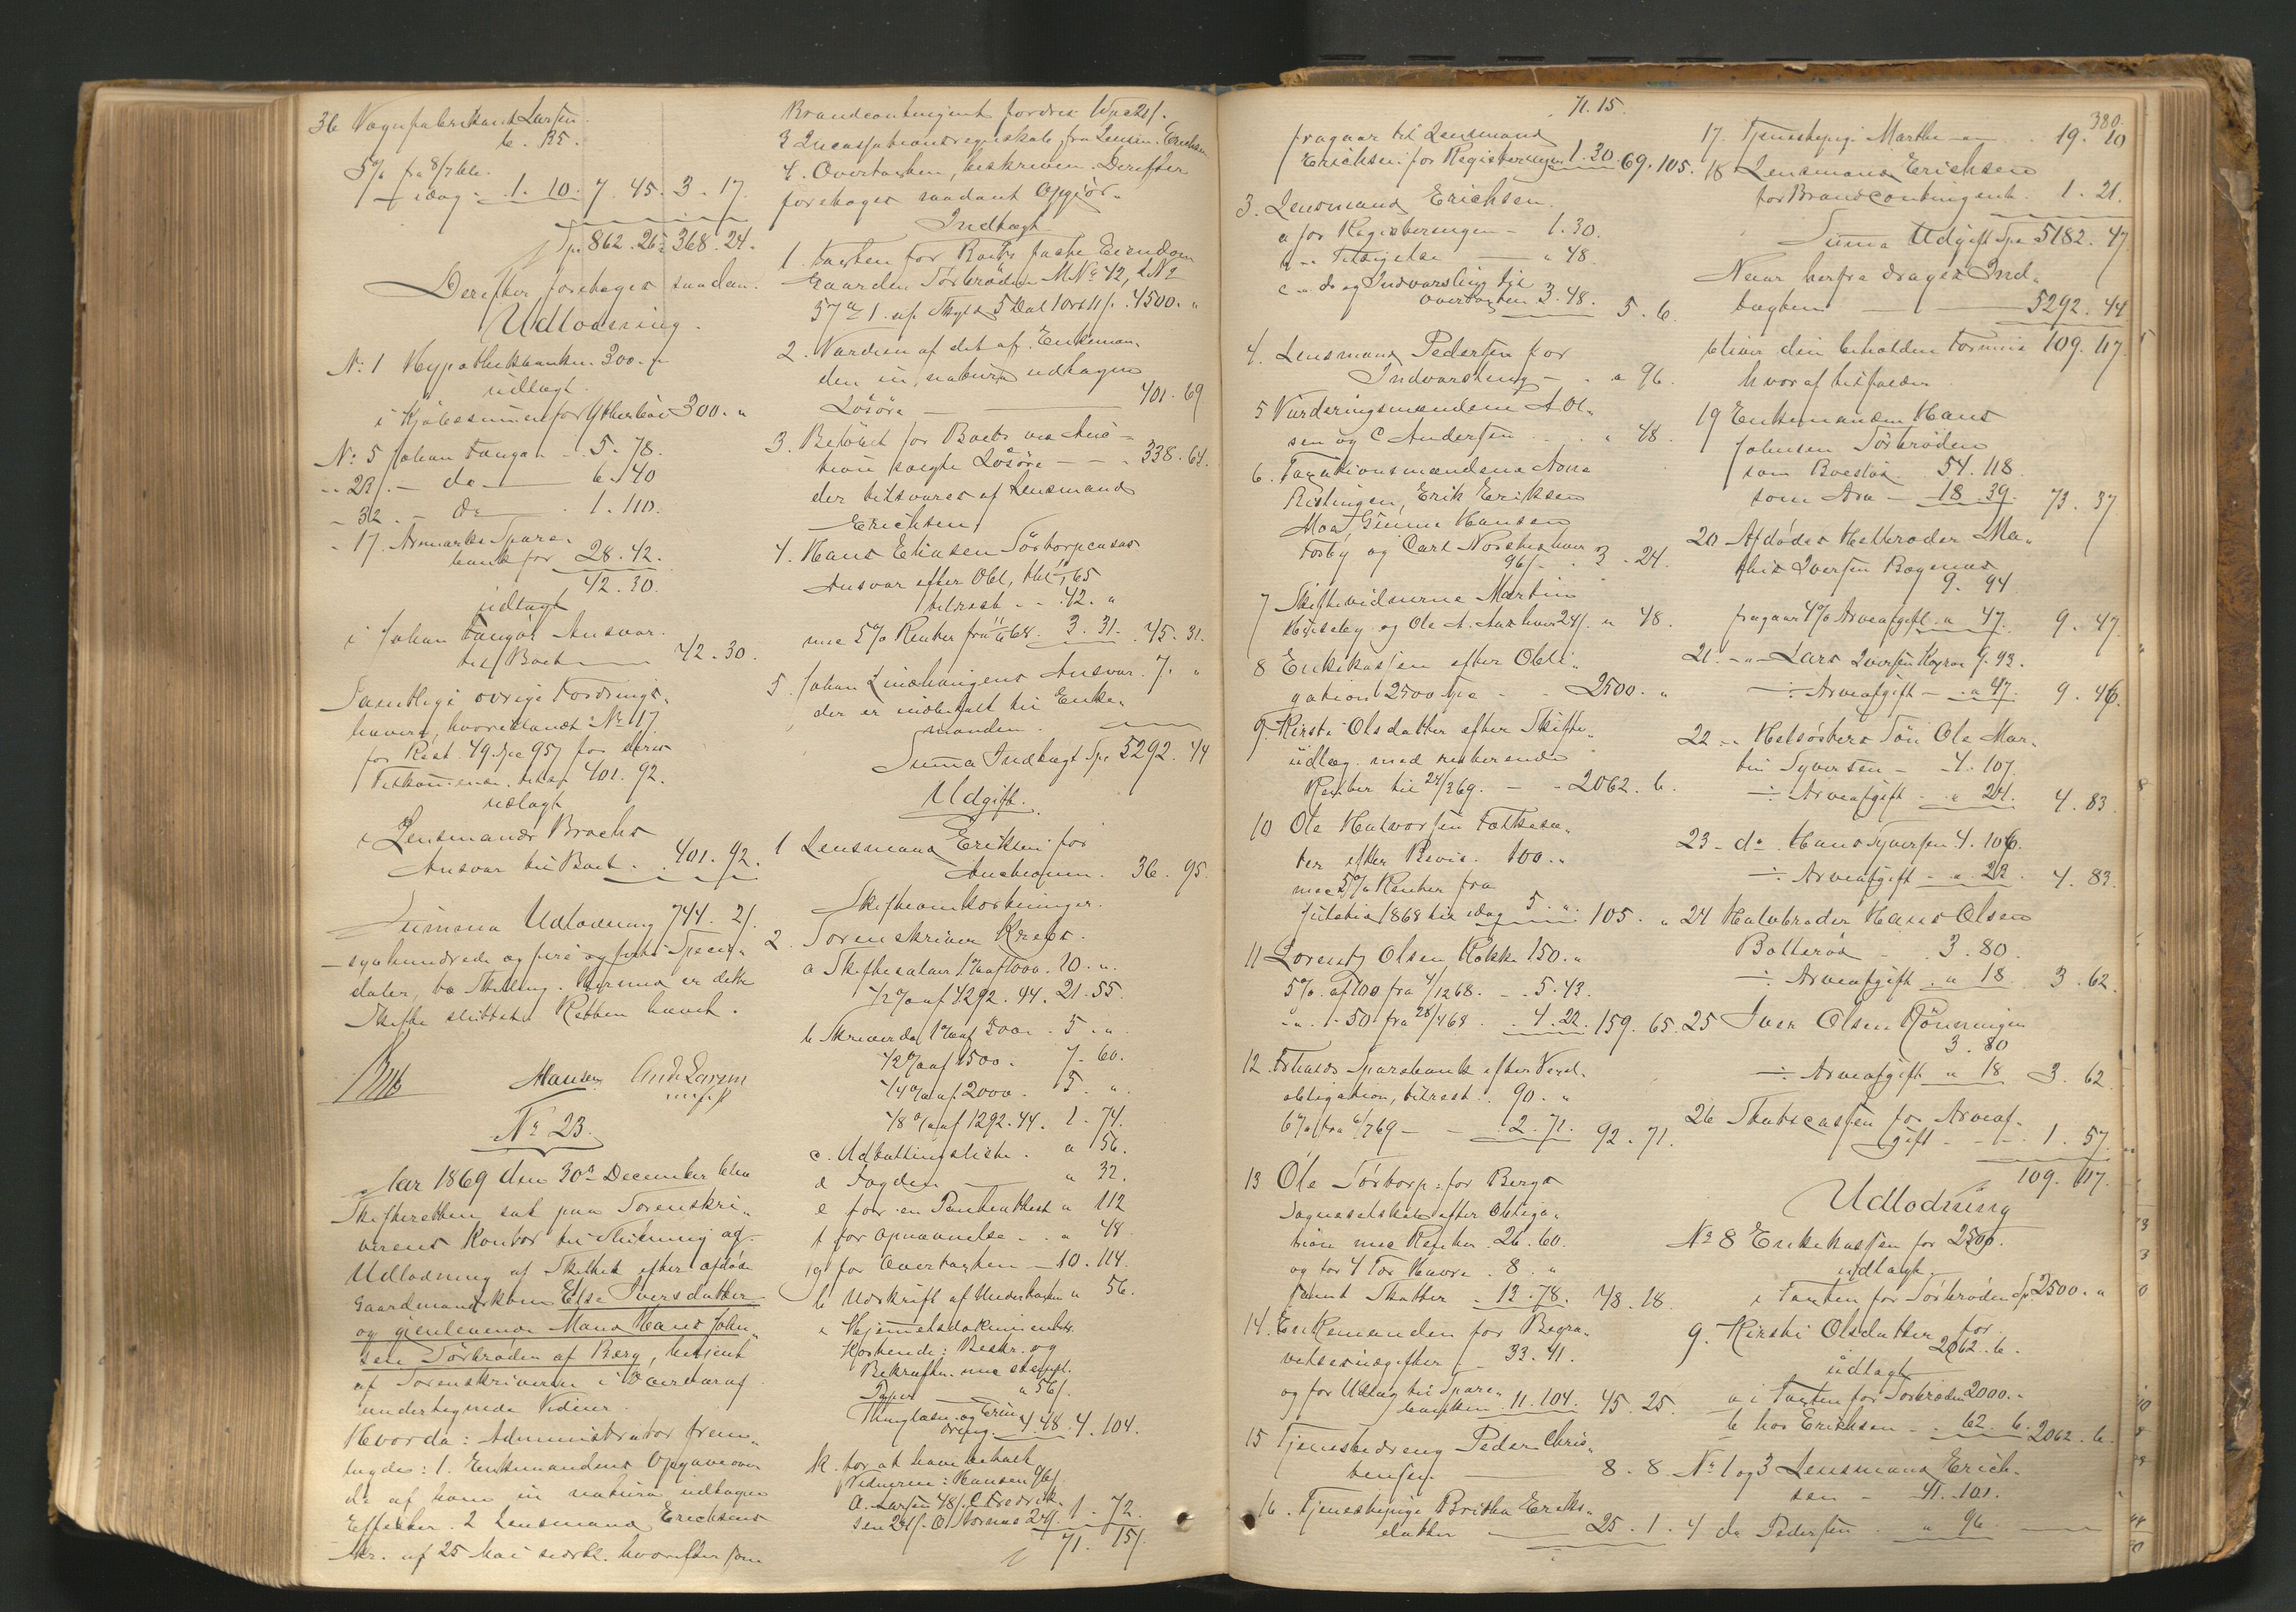 36 Vognfabrikant Larsen
6. 35.
5% fra 8/7 66
– idag – 1. 10. 7. 45. 3. 17.
Sp 862. 26 368. 24.
Derefter foretoges saadan.
Udlodning.
No: 1 Hypothekbanken 300.
udlagt
i Kjøbesummen for 300. "
No: 5 Johan Tangen – 5. 78.
" 29. – do – 6. 40
" 32. – do – 1. 110.
" 17. Aremarks Spare-
bank for 28. 42.
42. 30.
udlagt
i Johan Tangens Ansvar
til Boet 42. 30.
Samtlige øvrige Fordrings-
havere, hvoriblandt No 17
for Rest 49 Spe 95 for deres
Tilkommende 401. 92.
udlagt
i Lensmand Brochs
Ansvar til Boet. 401. 92.
Summa Udlodning 744. 2.
– syvhundrede og fire og firti Specie-
daler, to Skilling. Hermed er dette
Skifte sluttet. Retten hævet.
Hansen And Larsen
No 23.
Aar 1869 den 30te December blev
Skifteretten sat paa Sorenskri-
verens Kontor til Slutning og
Udlodning af Skiftet efter afdøde
Gaardmandskone Else Iversdatter
og gjenlevende Mand Hans John-
sen Torbrøden af Berg, betjent
af Sorenskriveren i Overvær af
undertegnede Vidner.
Hvorda: Administrator frem-
lagde: 1. Enkemandens Opgave over
de af ham in natura udtagne
Effekter. 2 Lensmand Erichsens
Skr. af 25 Mai sidstl. hvorefter som
Brandcontingent fordres 1 Spd 21.
3 Incassationsregnskab fra Lensm. Erichsen
4. Overtaxten, beskreven. Derefter
foretoges saadant Opgjør.
Indtægt
1. Taxten for Boets faste Eiendom
Gaarden Torbrøden M No 42, L No
57 a 1. af Skyld 5 Dal 1 Ort 11 s. 4500. "
2. Værdien af det af Enkeman-
den in natura udtagne
Løsøre – 401. 69
3. Beløbet for Boets ved Auc-
tion solgte Løsøre – 338. 64.
der tilsvares af Lensmand
Erichsen
4. Hans Eliasen Torborp
Ansvar efter Obl,
tilrest – 42. "
med 5% Renter fra 11/6 68. 3. 31. 45. 31.
5. Johan Ansvar. 7. "
der er indbetalt til Enke-
manden.
Summa Indtægt Spe 5292. 44
Udgift.
1 Lensmand Eriksen for
Auctionen. 36. 95.
Skifteomkostninger.
2. Sorenskriver Krebs.
a Skiftesalær 1% af 1000. 10. "
1/2% af 4292. 44. 21. 55.
b Skriverdal 1% af 500. 5. "
1/2% af 1500. 7. 60.
1/4% af 2000. 5. "
1/8% af 1292. 44. 1. 74.
c. Udbuttingsliste. " 56.
d Fogden – " 32.
e for en Panteattest " 112
f for Opnævnelse – " 48
g for Overtaxten – 10. 114.
h Udskrift af Undertaxten " 56.
i Hjemmelsdokumentets
Kostende: Beskr. og
Bekræftn. med stemplt
Papir " 56
Thinglæsn. og Erin-
dring. 4. 48. 4. 104.
k. for at have betalt
Vidnerne: Hansen 96
A. Larsen 48, C Fredrik-
sen 24, O. 24. 1. 72.
71. 15
71. 15.
380.
fragaar til Lensmand
Erichsen for Registeringen 1. 30. 69. 105.
3. Lensmand Erichsen.
a for Registeringen – 1. 30.
b " Tilsigelse – " 48.
c " do og Indvarsling til
overtaxten 3. 48. 5. 6.
4. Lensmand Pedersen for
Indvarsling – " 96.
5 Vurderingsmændene A Ol-
sen og C Andersen . . " 48.
6. Taxationsmændene
Erik Eriksen
Moa, Hansen
Torby og Carl hver
96 – 3. 24.
7 Skiftevidnerne Martin
og Ole A. hver 24. " 48.
8 Enkekassen efter Obli-
gation 2500 Spe – 2500. "
9. Kirsti Olsdatter efter Skifte-
udlæg med resterende
Renter til 24/3 69. – 2062. 6.
10 Ole Halvorsen
efter Bevis. 100. "
med 5% Renter fra
Juletid 1868 til idag 5. " 105. "
11 Lorents Olsen Kokke 150. "
5% af 100 fra 4/12 68. – 5. 43.
" 50 fra 28/4 68 . 4. 22. 159. 65.
12. Sparebank efter Vexel-
obligation, tilrest. 90. "
6% fra 6/7 69 – 2. 71. 92. 71.
13 Ole Torborp for Bergs
Sogneselskab efter Obliga-
tion med Renter. 26. 60.
og for 4 Tdr Havre . 8. "
samt Skatter – 13. 78. 48. 18.
14. Enkemanden for Begra-
velsesudgifter – 33. 41.
og for Udlæg til Spare-
banken. 11. 104. 45. 25
15 Tjenestedreng Peder Chris-
tensen 8. 8.
16. Tjenestepige Britha Eriks-
datter 25. 1.
17. Tjenestepige Marthe – 19. 10
18 Lensmand Erichsen
for Brandcontingent. 1. 21.
Summa Udgift Spe 5182. 47
Naar herfra drages Ind-
tægten – 5292. 44
bliver den beholdne Formue 109. 117.
hvoraf tilfalder
19 Enkemanden Hans
Johnsen Torbrøden
som Boeslod 54. 118.
som Arv – 18. 39. 73. 37
20. Afdødes Helbroder Ma-
this Iversen Bøgenes
9. 94
fragaar 4% Arveafgift " 47. 9. 47
21. " Lars Iversen 9. 93.
÷ Arveafgift – " 47. 9. 46.
22 " Helsøsters Søn Ole Mar-
tin Syversen – 4. 107.
÷ Arveafgift – " 24. 4. 83.
23 – do Hans Syversen 4. 106.
÷ Arveafgift – " 23. 4. 83.
24 Halvbroder Hans Olsen
Bolterød – 3. 80.
÷ Arveafgift " 18 3. 62.
25 Iver Olsen Rønningen
3. 80
÷ Arveafgift " 18 3. 62.
26 Statscassen for Arveaf-
gift – 1. 57.
109. 117.
Udlodning
No 8 Enkekassen for 2500.
udlagt
i Taxten for Torbrøden Sp 2500. "
9. Kirsti Olsdatter for
2062. 6.
udlagt
a i Taxten for Torbrøden 2000. "
b hos Erichsen – 62. 6. 2062. 6.
No 1 og 3 Lensmand Erich-
sen – 41. 101.
4 do Pedersen " 96